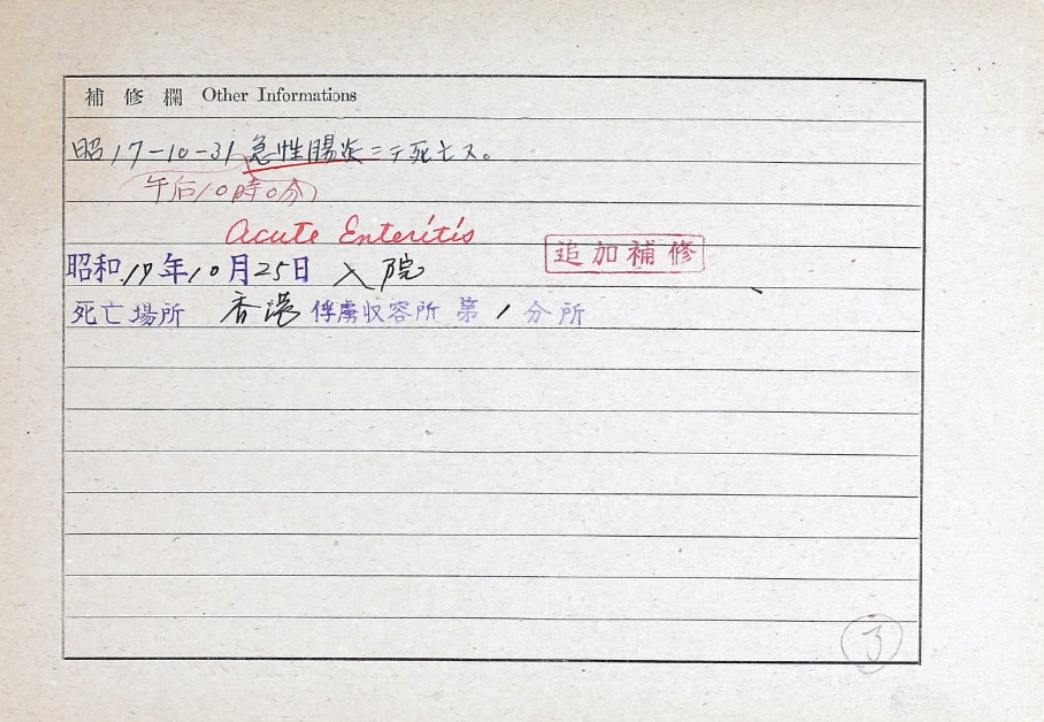 補修欄 Other Informations
昭17-10-31 急性腸炎ニテ死亡ス。
(午后10時0分)
Acute Enteritis
追加補修
昭和17年10月25日 入院
死亡場所 香港俘虜収容所第1分所
3